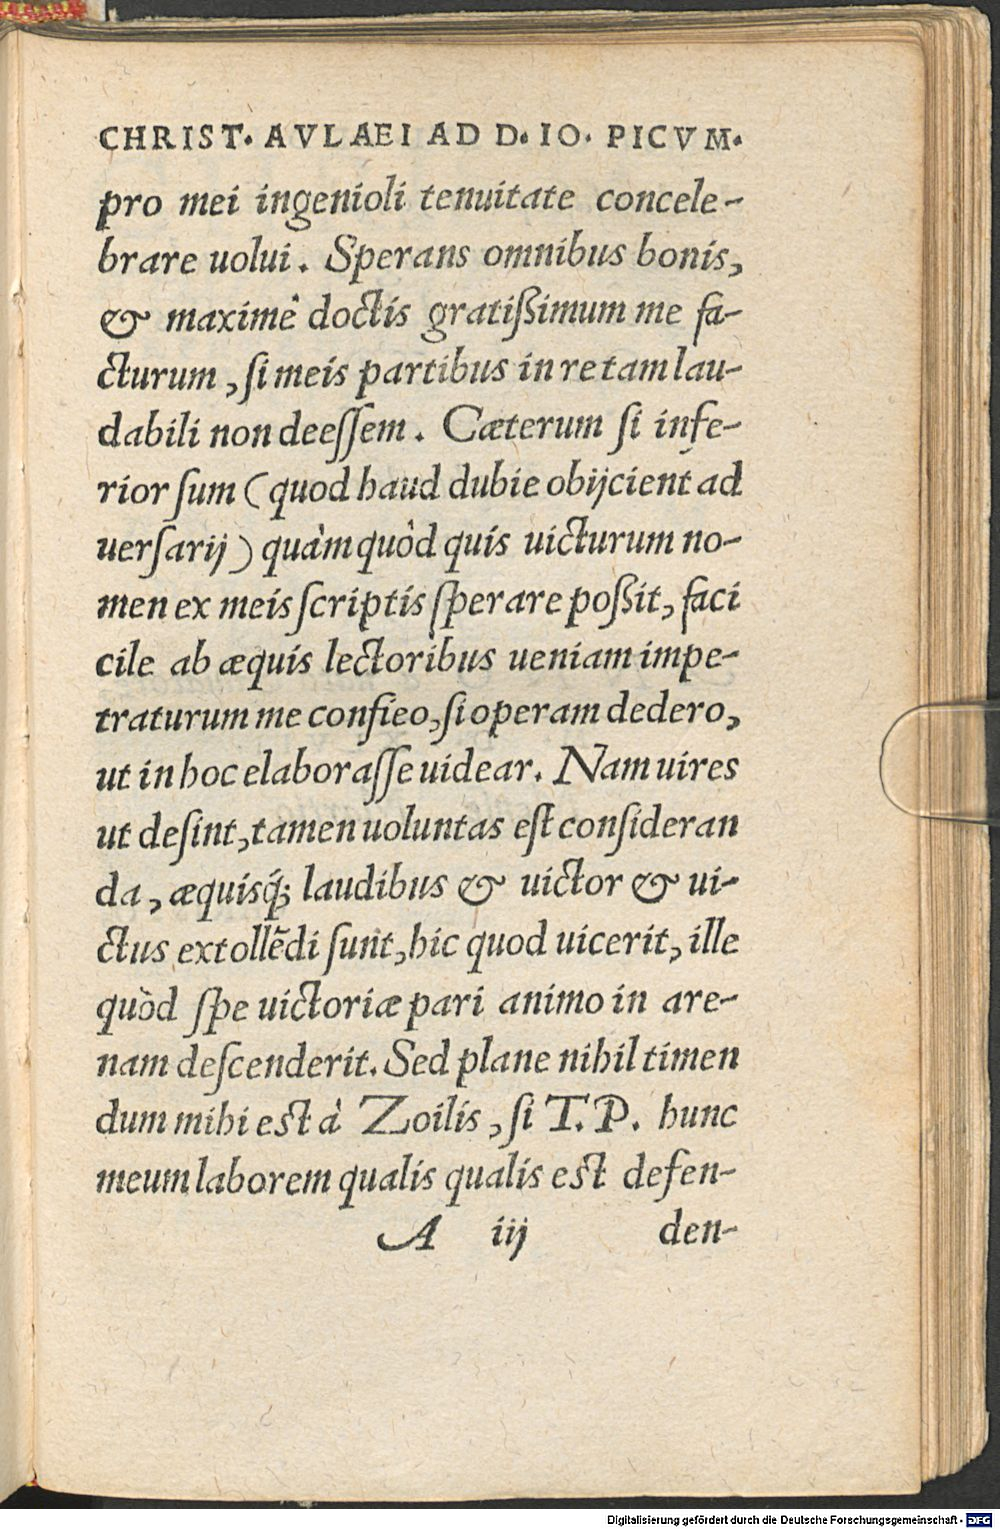 CHRIST. AVLAEI AD D. IO. PICVM.
pro mei ingenioli tenuitate concele-
brare uolui. Sperans omnibus bonis,
& maximè doctis gratißimum me fa-
cturum, ſi meis partibus in re tam lau-
dabili non deeſſem. Cæterum ſi infe-
rior ſum (quod haud dubie obijcient ad
uerſarij) quàm quòd quis uicturum no-
men ex meis ſcriptis ſperare poßit, faci
cile ab æquis lectoribus ueniam impe-
traturum me confieo, ſi operam dedero,
ut in hoc elaboraſſe uidear. Nam uires
ut deſint, tamen uoluntas eſt conſideran
da, æquisq́; laudibus & uictor & ui-
ctus extollẽdi ſunt, hic quod uicerit, ille
quòd ſpe uictoriæ pari animo in are-
nam deſcenderit. Sed plane nihil timen
dum mihi est à Zoilis, ſi T. P. hunc
meum laborem qualis qualis est defen-
A iij den-
Digitalisierung gefördert durch die Deutsche Forschungsgemeinschaft - DFG